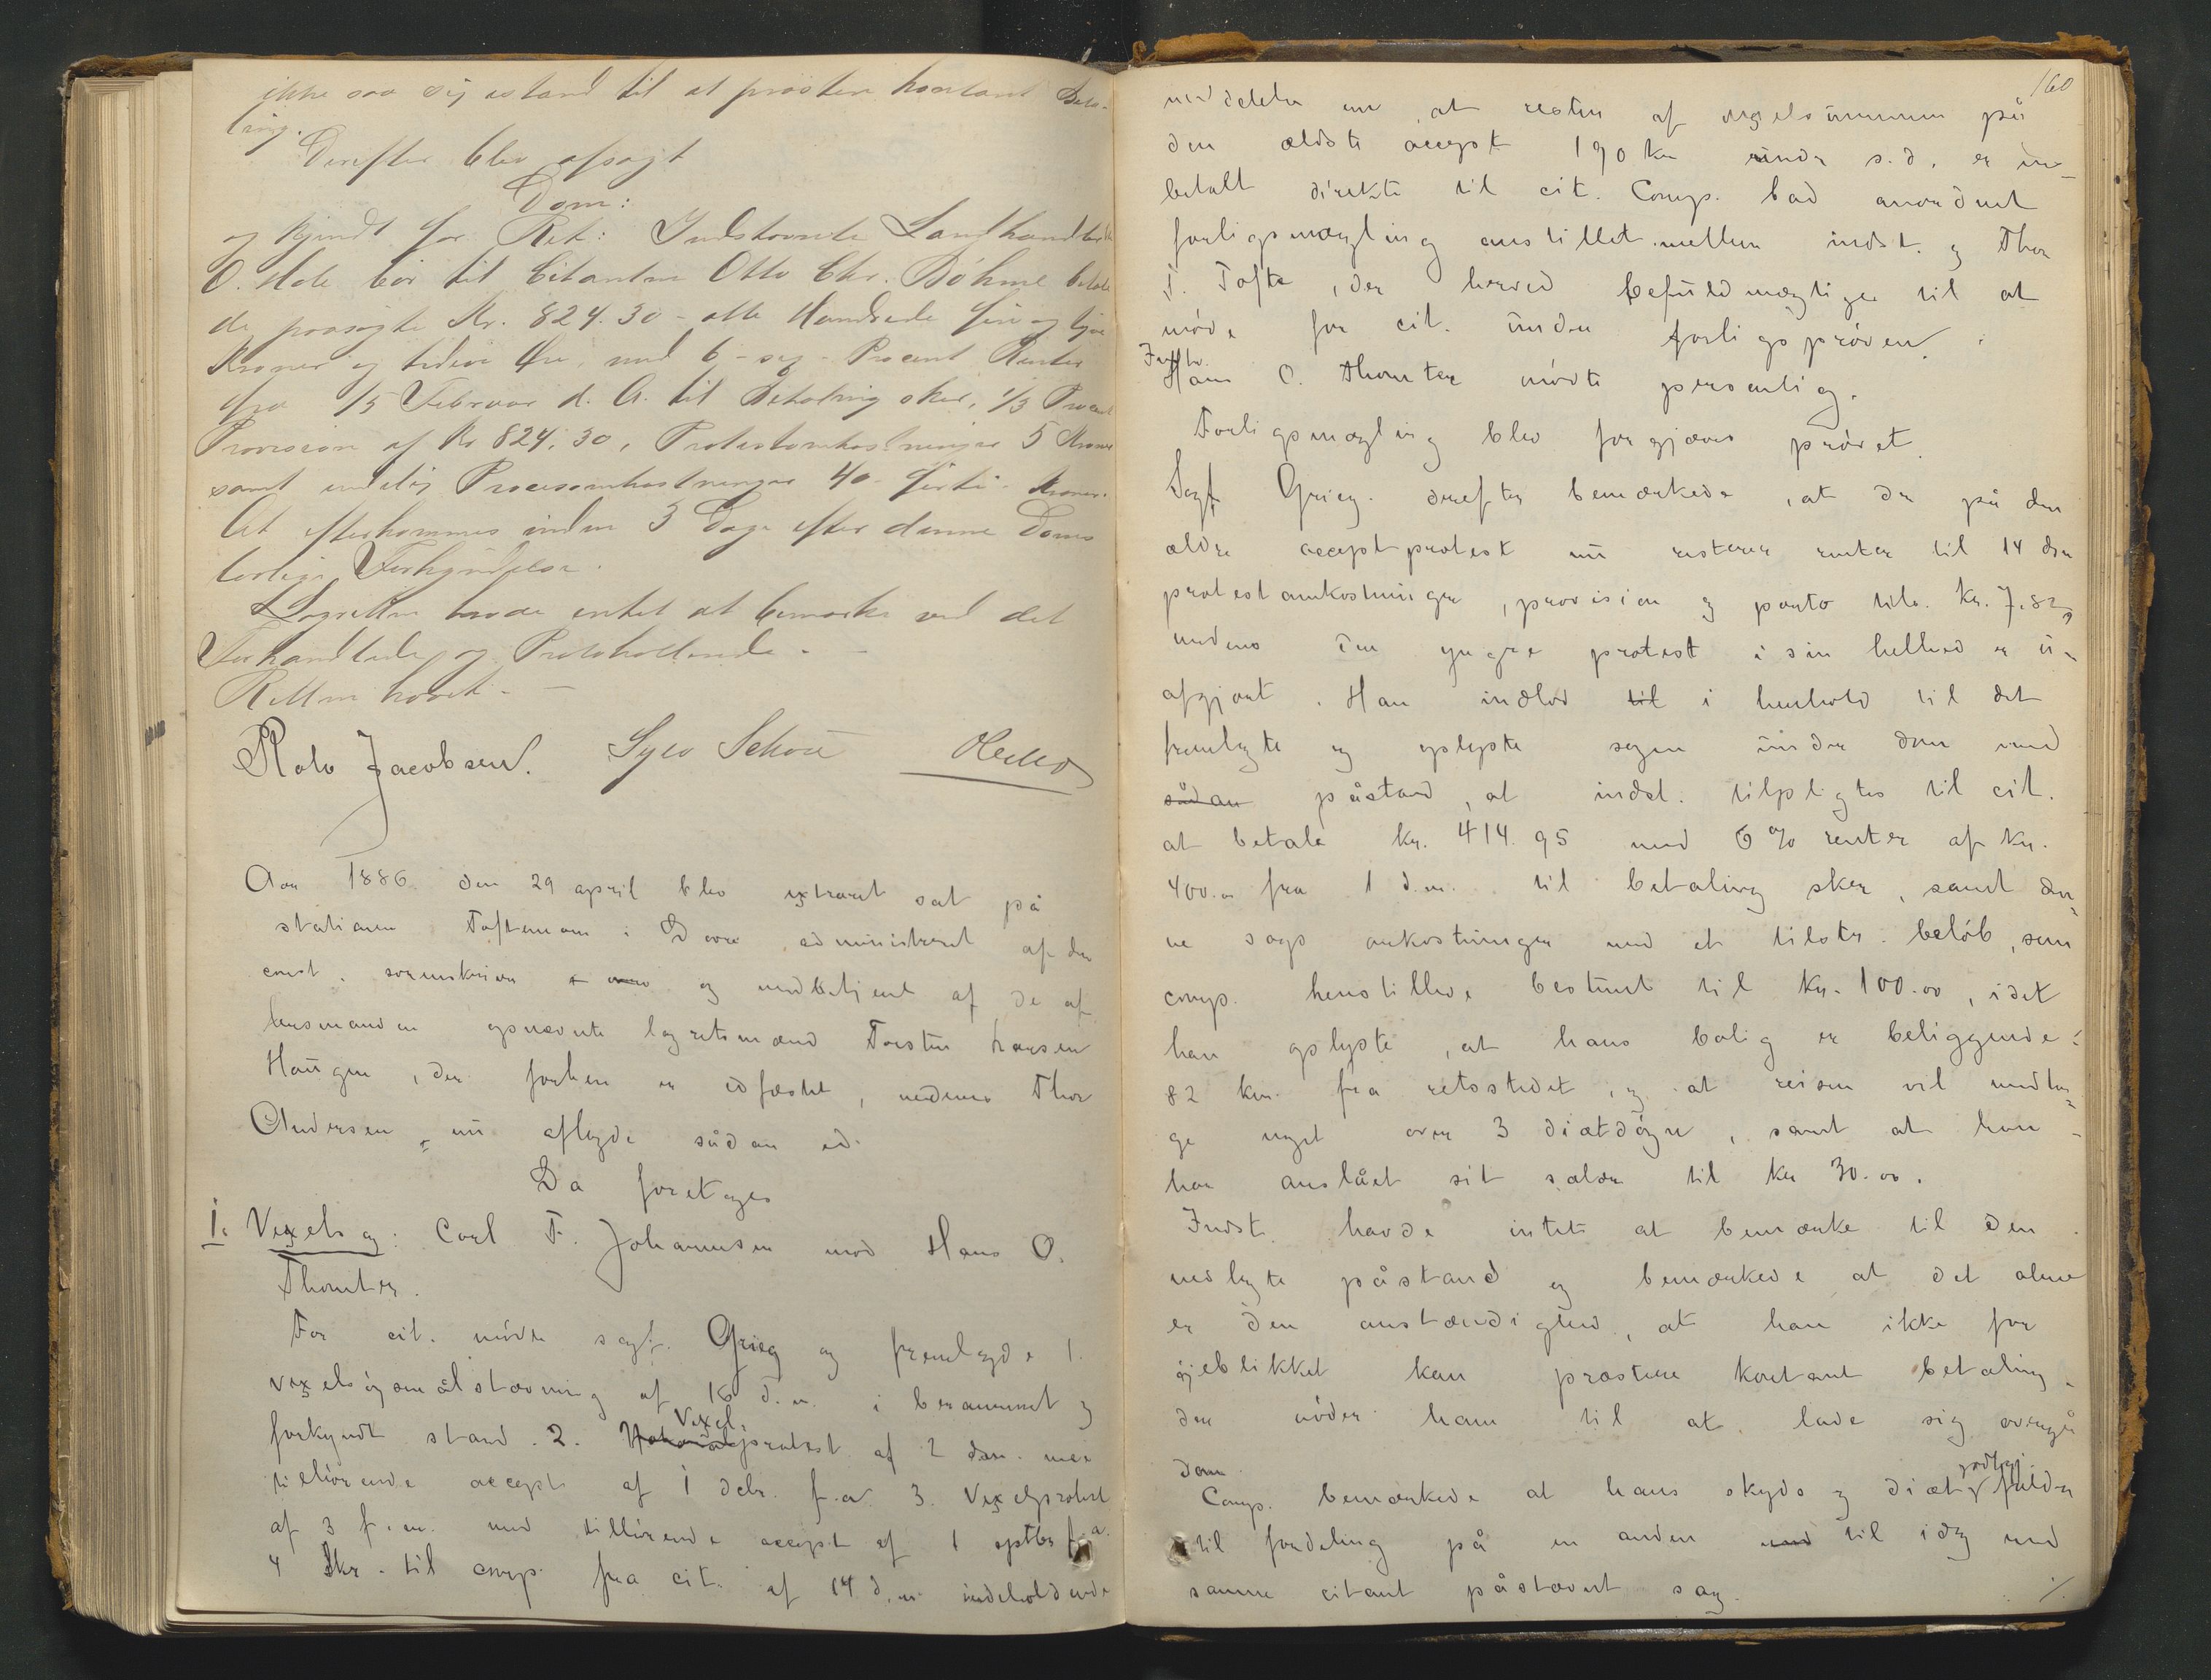 ikke saa sig istand til at præstere kontant Beta-
ling.
Derefter blev afsagt
Dom:
og kjendt for Ret: Indstævnte Landhandler
O. Hole bør til Citanten Otto Chr. Böhme betale
de paasagte Kr. 824.30 - otte Hundrede fire og tyve
Kroner og tredive Øre, med 6 - sex - Procent Renter
fra 15 Februar d. A. til Betaling sker, 1/3 Procent
Provision af Kr 824.30, Protestomkostninger 5 Kroner
samt endelig Procesomkostninger 40 - firti - Kroner.
At efterkommes inden 3 Dage efter denne Doms
lovlige Forkyndelse.
Lagretten havde intet at bemærke ved det
Forhandlede og Protokollerede. -
Retten hævet. -
Rolv Jacobsen. Syver Schou
Aar 1886 den 29 april blev extraret sat på
stationen Toftemoen i Dovre administreret af den
const. sorenskriver og medbetjent af de af
lensmanden opnævnte lagretsmænd Torsten Larsen
Haugen, der forhen er edfæstet, medens Thor
Andersen nu aflagde sådan ed.
Da foretoges
1. Vexelsag: Carl F. Johannesen mod Hans O.
Thomter.
For cit. mødte sagf. Grieg og fremlagde 1.
vexelsøgsmålstævning af 16 d.m. i berammet og
forkyndt stand. 2. Vexelprotest af 2 med
tilhørende accept af 1 debr. f.a. 3. Vexelprotest
af 3 f.m. med tilhørende accept af 1 septbr f.a.
4 Skr. til comp. fra cit. af 14 d.m. indeholdende
160
meddelelse om, at resten af vexelsummen på
den ældste accept 190 kr under s.d. er ind-
betalt direkte til cit. Comp. bad anordnet
forligsmægling anstillet mellem indst. og Thor
T. Tofte, der herved befuldmægtiges til at
møde for cit. under forligsprøven.
Indstv.
Hans O. Thomter mødte personlig.
Forligsmægling blev forgjæves prøvet.
Sagf. Grieg derefter bemærkede, at der på den
ældre acceptprotest nu resterer renter til 14 ds
protestomkostninger, provision og porto tils. Kr. 7.82,
medens den yngre protest i sin helhed er u-
afgjort. Han indlod til i henhold til det
fremlagte og oplyste sagen under dom med
sådan påstand, at indst. tilpligtes til cit.
at betale kr. 414.95 med 6 % renter af Kr.
400.00 fra 1 d.m. til betaling sker, samt den-
ne sags omkostninger med et tilstr. beløb, som
comp. henstillede bestemt til Kr. 100.00, idet
han oplyste, at hans bolig er beliggende
82 km. fra retsstedet, og at reisen vil medta-
ge noget over 3 diætdøgn, samt at han
har anslået sit salær til kr 30.00.
Indst. havde intet at bemærke til den
nedlagte påstand og bemærkede at det alene
er den omstændighed, at han ikke for
øjeblikket kan præstere kontant betaling,
der nøder ham til at lade sig overgå
dom.
Comp. bemærkede at hans skyds og diætgodtgj. falder
til fordeling på en anden til idag med
samme citant påstævnt sag.